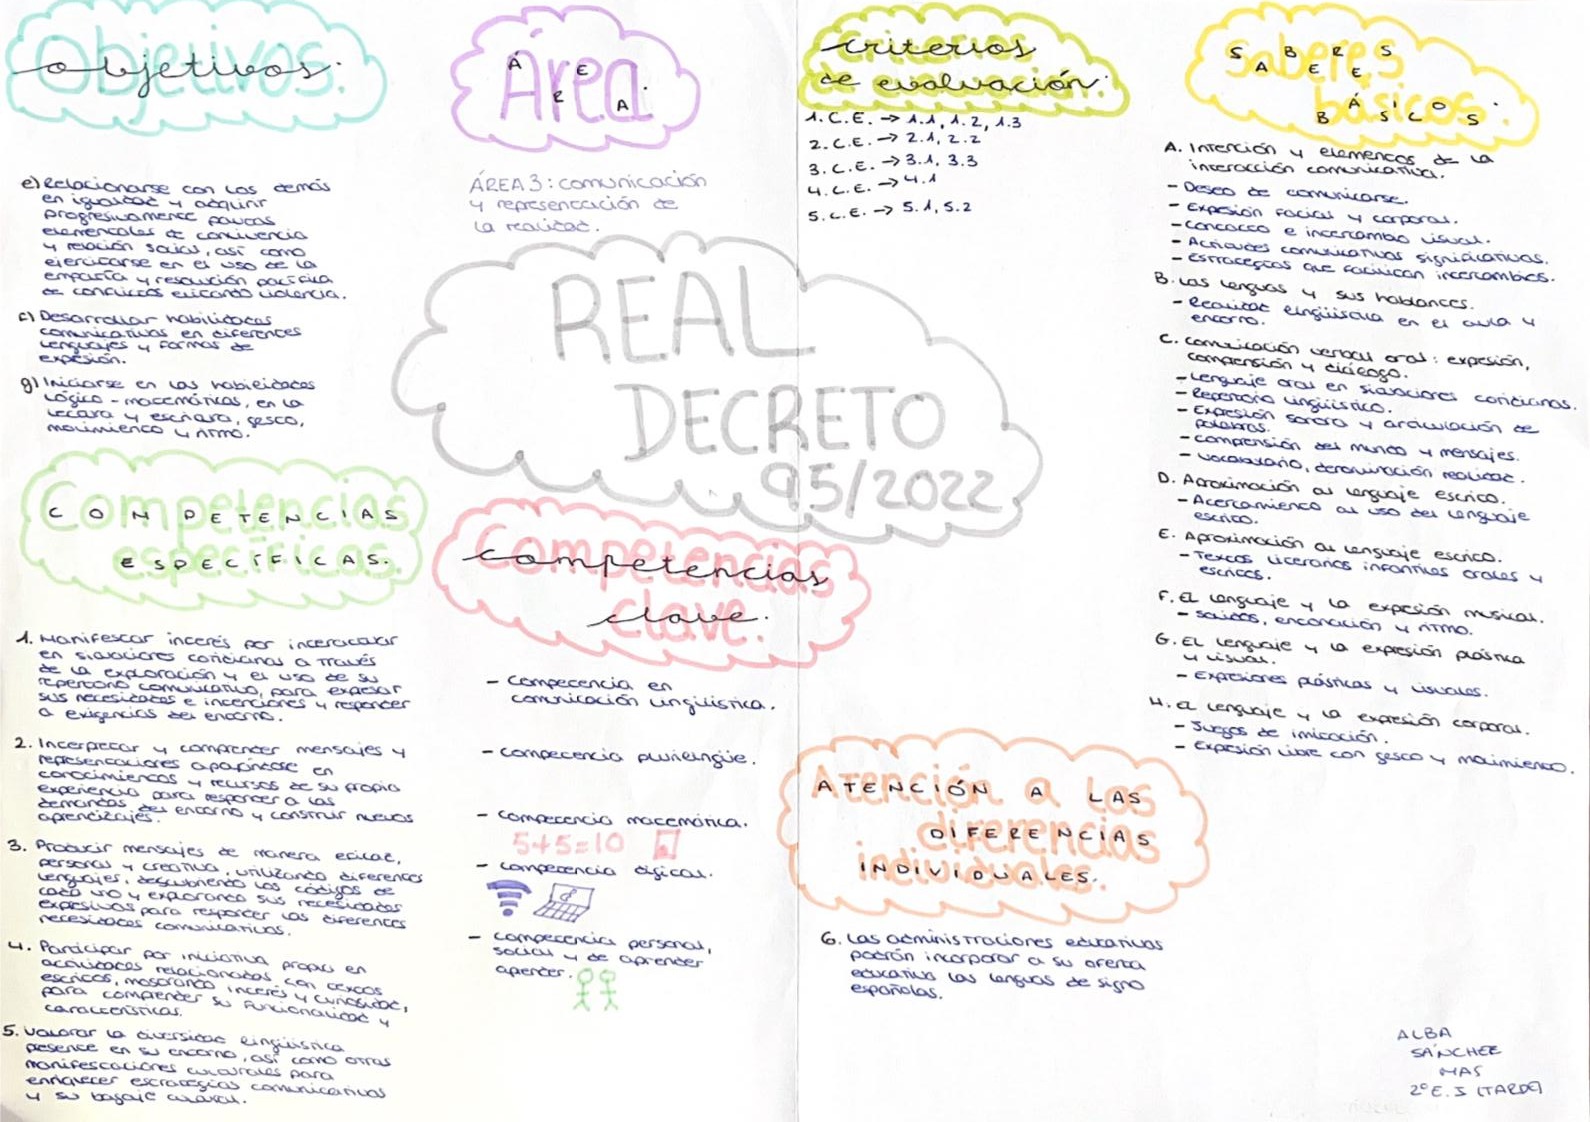 Objetivos:
e) Relacionarse con los demás
en igualdad y adquirir
progresivamente pautas
elementales de convivencia
y relación social, así como
ejercitarse en el uso de la
empatía y resolución pacífica
de conflictos evitando violencia.
f) Desarrollar habilidades
comunicativas en diferentes
lenguajes y formas de
expesión.
g) Iniciarse en las habilidades
lógico-matemáticas, en la
lectura y escritura, gesto,
movimiento y ritmo.
COMPETENCIAS
ESPECÍFICAS.
1. Manifestar interés por interactuar
en situaciones cotidianas a través
de la exploración y el uso de su
repertorio comunicativo, para expresar
sus necesidades e intenciones y responder
a exigencias del entorno.
2. Interpretar y comprender mensajes y
representaciones apoyándose en
conocimientos y recursos de su propia
experiencia para responder a las
demandas del entorno y construir nuevos
aprendizajes.
3. Producir mensajes de manera eficaz,
personal y creativa, utilizando diferentes
lenguajes, descubriendo los códigos de
cada uno y explorando sus necesidades
expresivos para responder las diferentes
necesidades comunicativas.
4. Participar por iniciativa propia en
actividades relacionadas con textos
escritos, mostrando interés y curiosidad,
para comprender su funcionalidad y
características.
5. Valorar la diversidad lingüística
presente en su entorno, así como otras
manifestaciones culturales para
enriquecer estrategias comunicativas
y su bagaje cultural.
ÁREA.
ÁREA 3: comunicación
y representación de
la realidad.
REAL
DECRETO
95/2022
Competencias
clave.
- Competencia en
comunicación lingüística.
- competencia plurilingüe.
- competencia matemática.
5+5=10
- competencia digital.
- competencia personal,
social y de aprender
aprender.
Criterios
de evaluación.
1. C.E. → 1.1, 1.2, 1.3
2. C.E. → 2.1, 2.2
3. C.E. → 3.1, 3.3
4. C.E. → 4.1
5. C.E. → 5.1, 5.2
ATENCIÓN A LAS
DIFERENCIAS
INDIVIDUALES.
6. Las administraciones educativas
podrán incorporar a su oferta
educativa las lenguas de signo
españolas.
SABERES
BÁSICOS.
A. Intención y elementos de la
interacción comunicativa.
- Deseo de comunicarse.
- Expesión facial y corporal.
- Contacto e intercambio visual.
- Actitudes comunicativas significativas.
- Estrategias que facilitan intercambios.
B. Las lenguas y sus hablantes.
- Realidad lingüística en el aula y
entorno.
C. Comunicación verbal oral: expesión,
comprensión y diálogo.
- Lenguaje oral en situaciones cotidianas.
- Repertorio lingüístico.
- Expresión sonora y articulación de
palabras.
- Comprensión del mundo y mensajes.
- Vocabulario, denominación realidad.
D. Aproximación al lenguaje escrito.
- Acercamiento al uso del lenguaje
escrito.
E. Aproximación al lenguaje escrito.
- Textos literarios infantiles orales y
escritos.
F. El lenguaje y la expesión musical.
- Sonidos, entonación y ritmo.
G. El lenguaje y la expresión plástica
y visual.
- Expresiones plásticas y visuales.
H. El lenguaje y la expresión corporal.
- Juegos de imitación.
- Expresión libre con gesto y movimiento.
ALBA
SÁNCHEZ
MAS
2º E.I (TARDE)